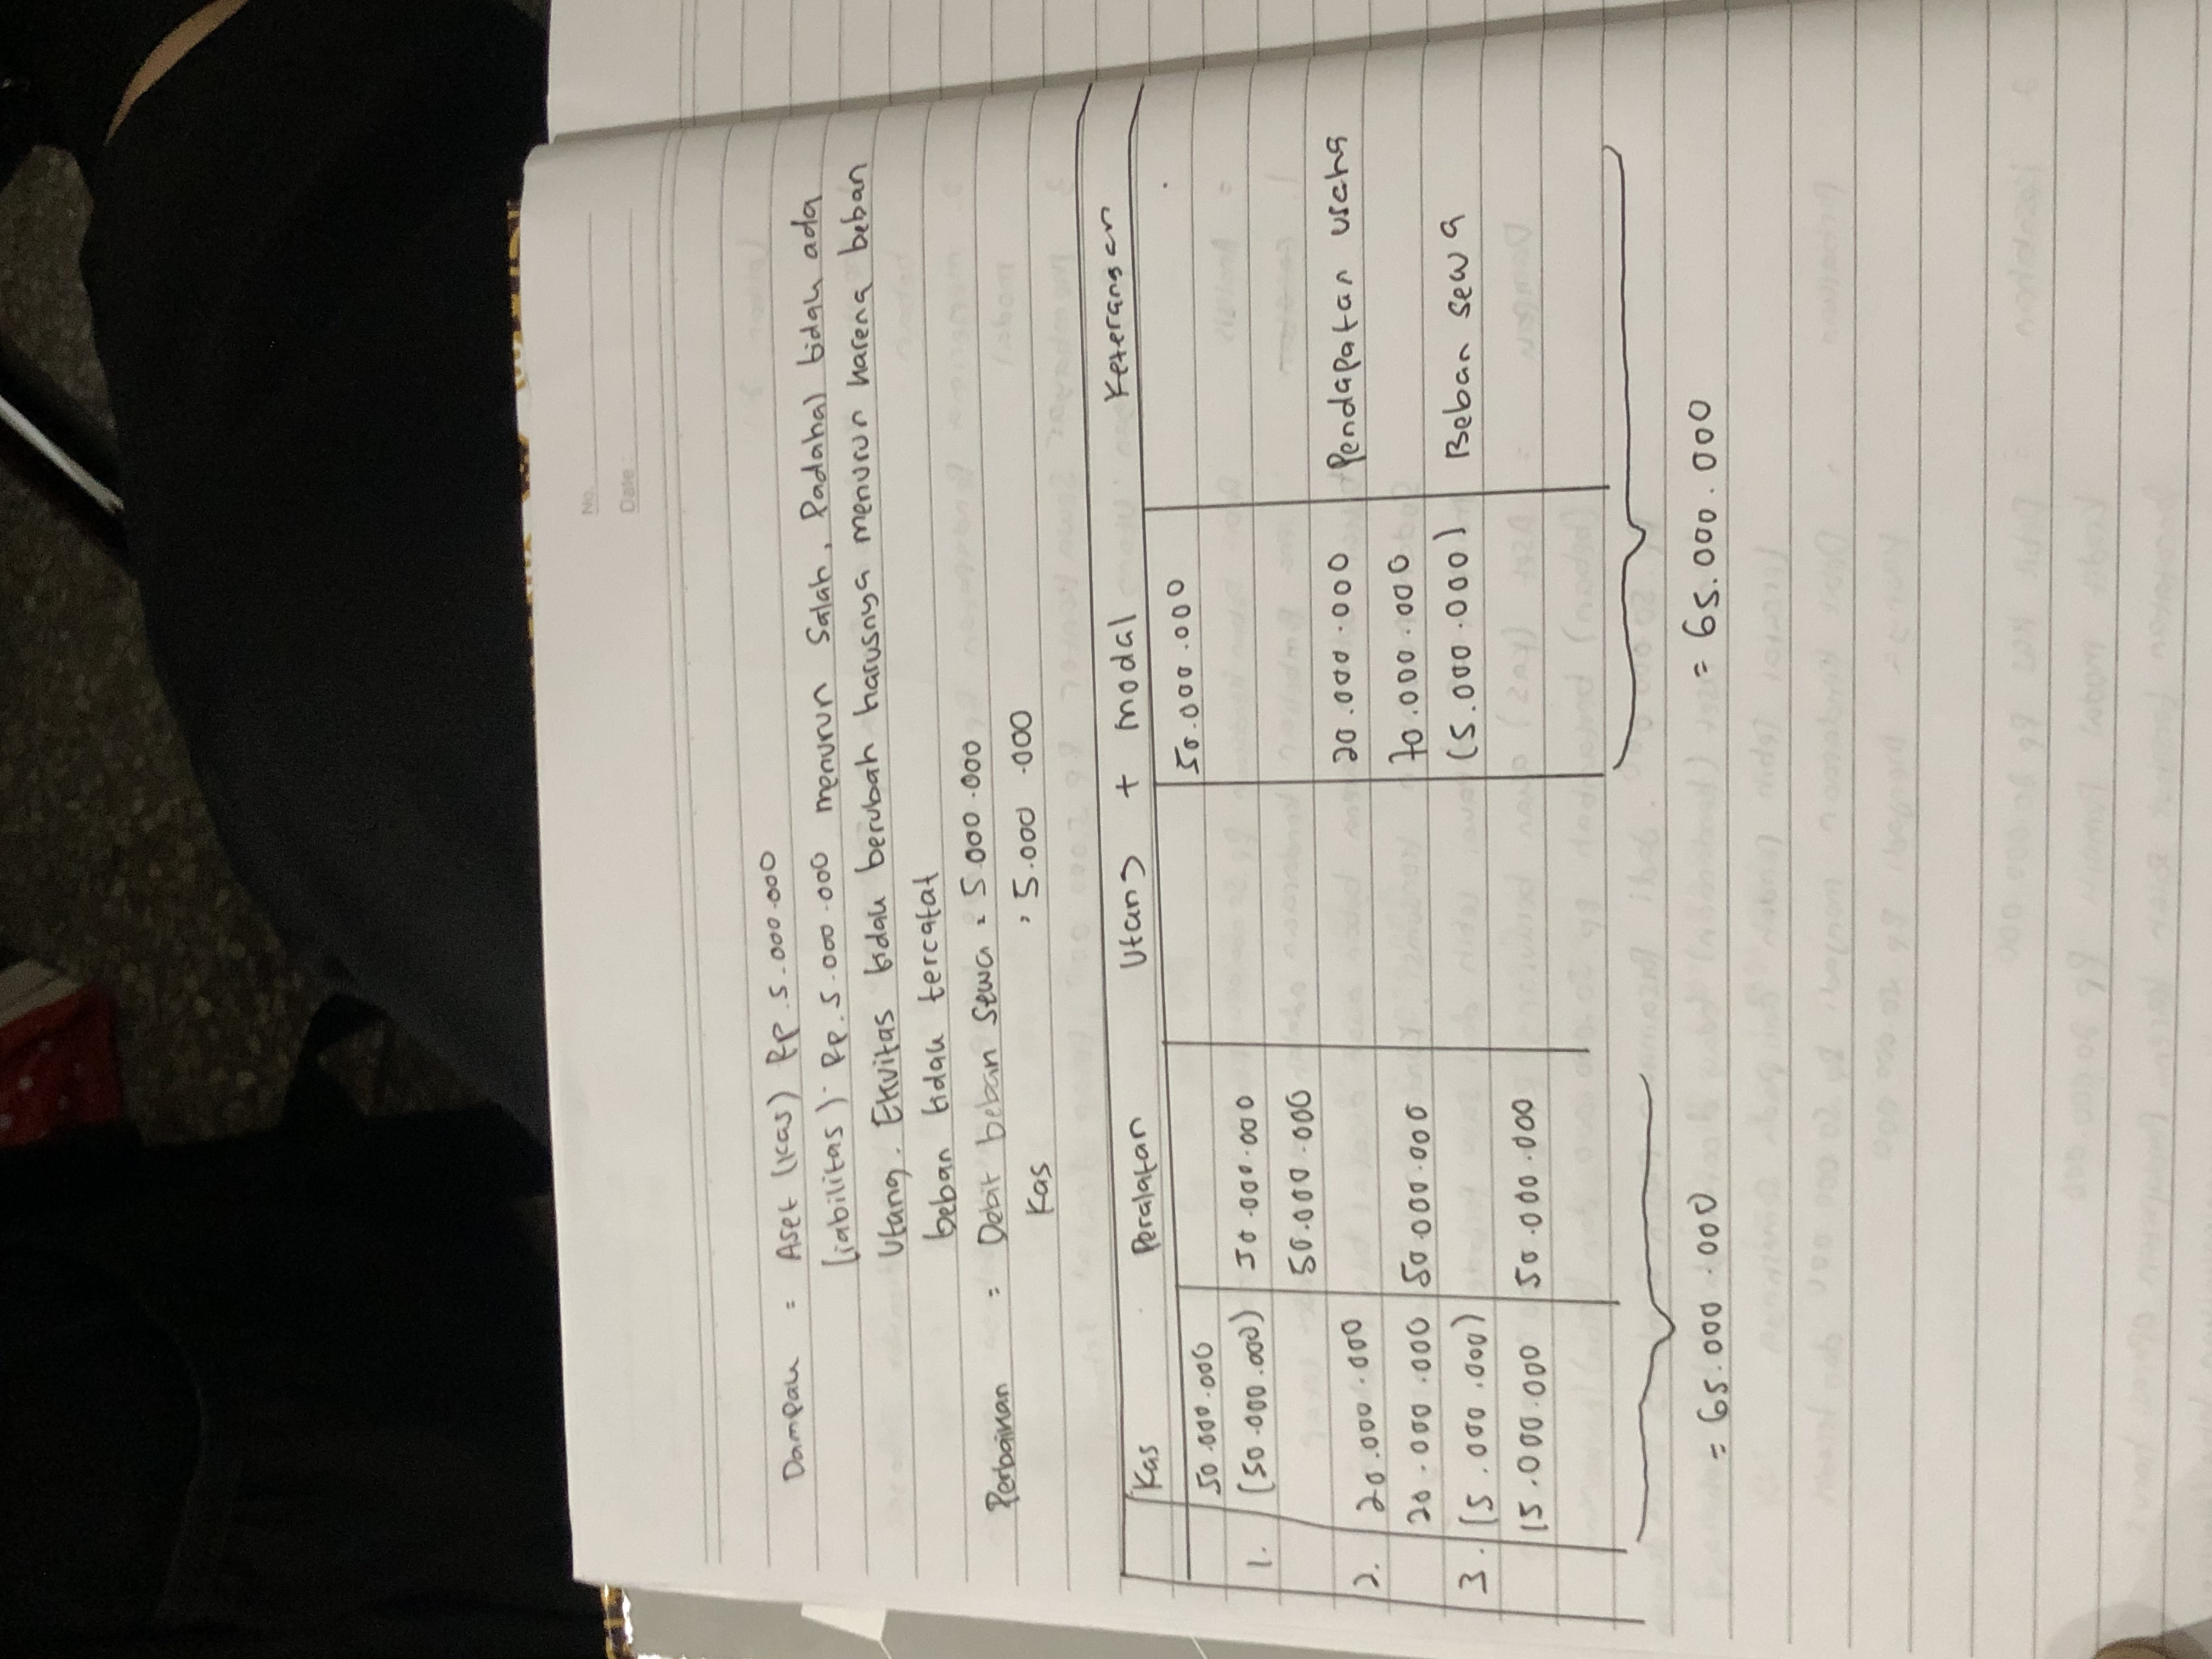 No.
Date:
Dampak = Aset (kas) Rp. 5.000.000
Liabilitas) Rp. 5.000.000 menurun Salah, Padahal tidak ada
Utang. Ekuitas tidak berubah harusnya menurun karena beban
beban tidak tercatat
Perbaikan = Debit beban Sewa = 5.000.000
Kas 5.000.000
Kas Peralatan Utang + modal Keterangan
50.000.000 50.000.000
1. (50.000.000) 50.000.000
50.000.000
2. 20.000.000 20.000.000 Pendapatan usaha
20.000.000 50.000.000 70.000.000
3. (5.000.000) (5.000.000) Beban sewa
15.000.000 50.000.000
= 65.000.000 = 65.000.000